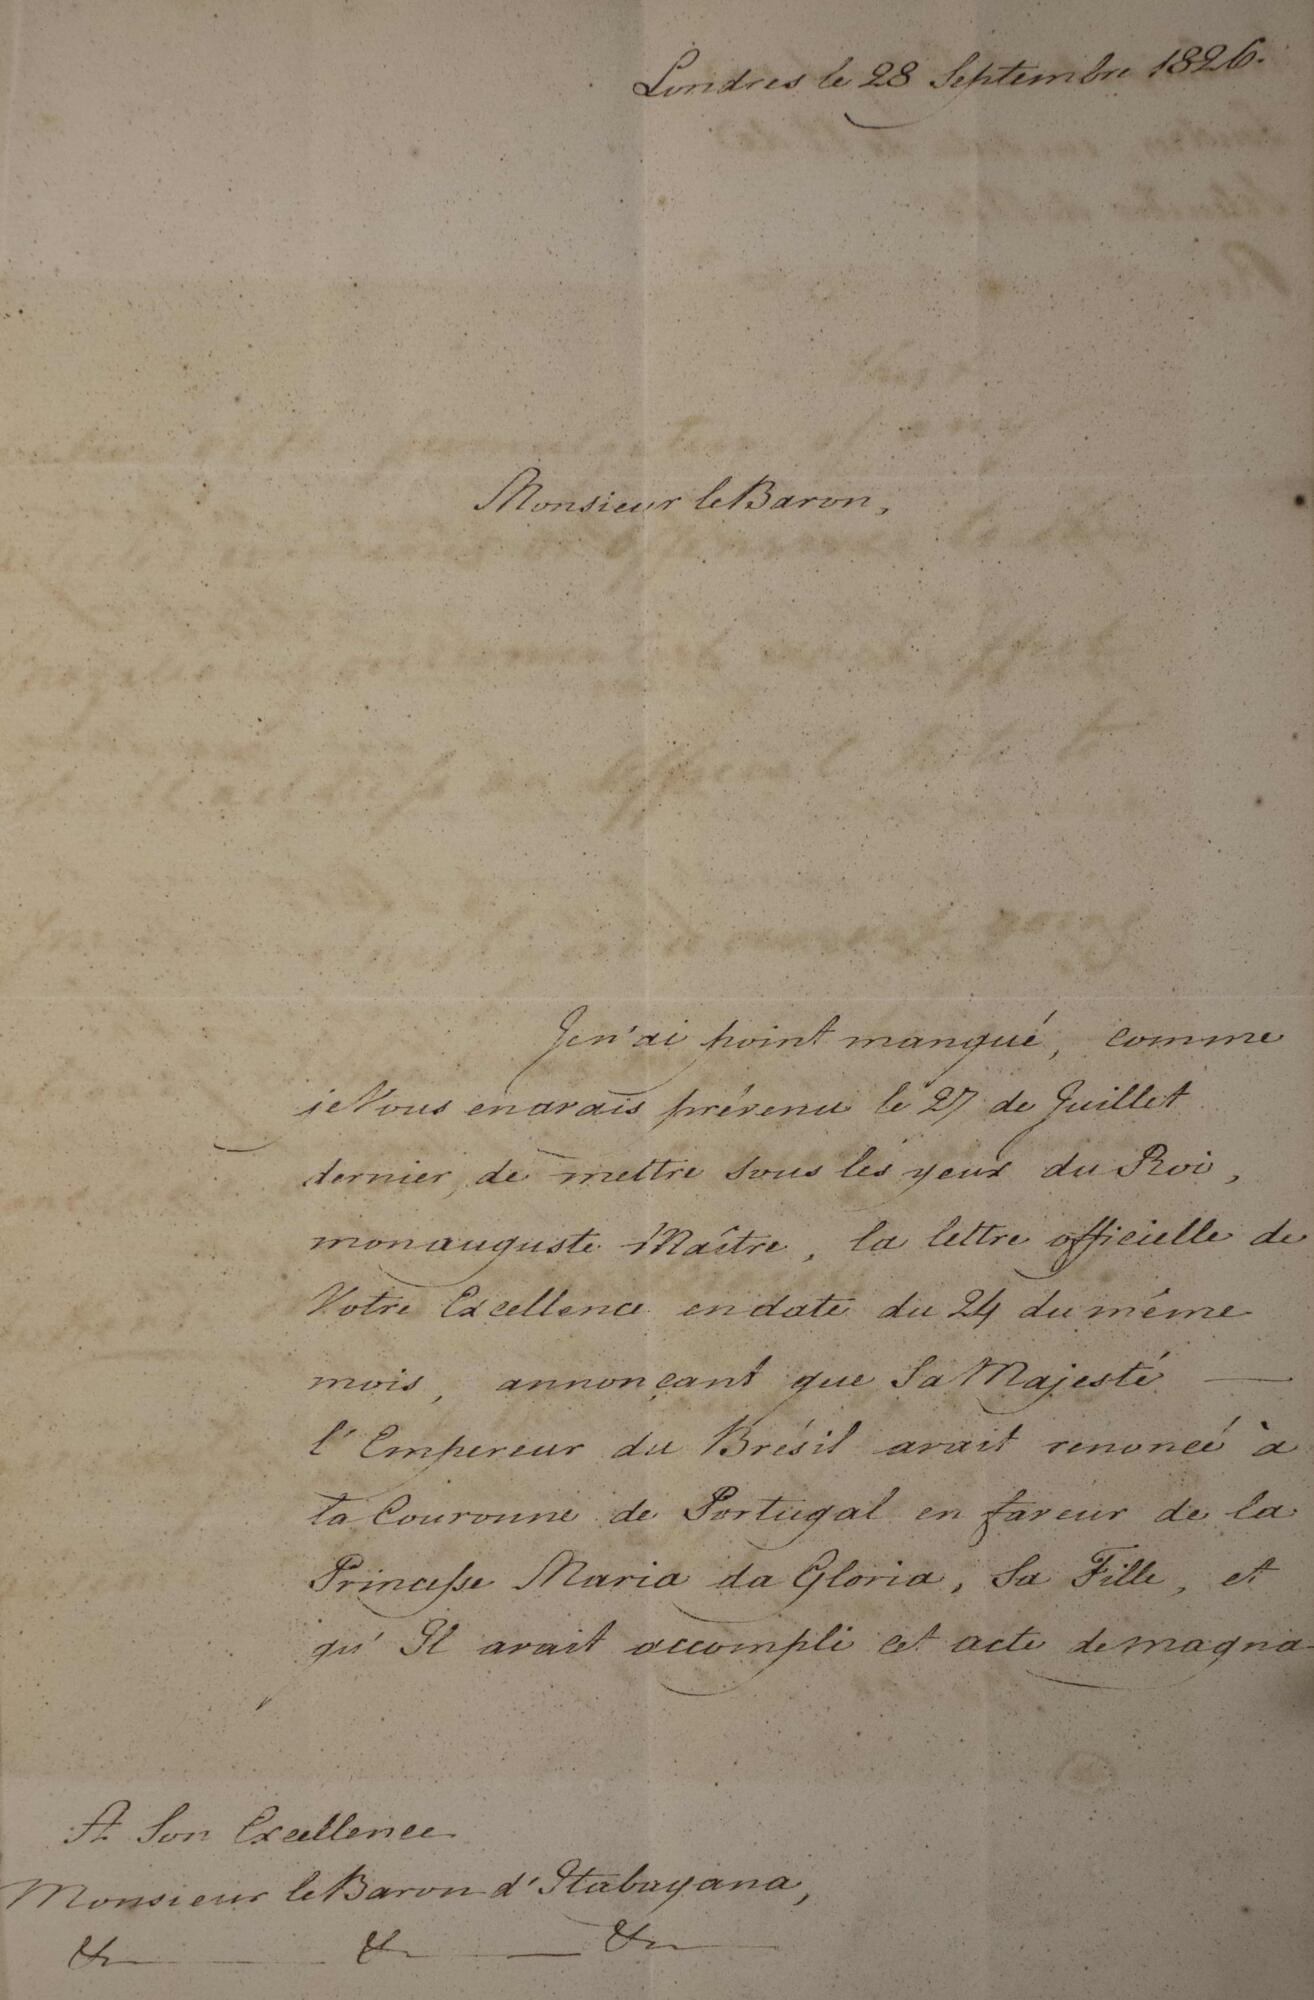 Londres le 28 Septembre 1826.
Monsieur le Baron,
Je n'ai point manqué, comme
je Vous en avais prévenu le 27 de Juillet
dernier, de mettre sous les yeux du Roi,
mon auguste Maître, la lettre officielle de
Votre Excellence en date du 24 du même
mois, annonçant que Sa Majesté —
l'Empereur du Brésil avait renoncé à
la Couronne de Portugal en faveur de la
Princesse Maria da Gloria, Sa Fille, et
qu'Il avait accompli cet acte de magna-
A Son Excellence
Monsieur le Baron d'Itabayana,
&c — &c — &c